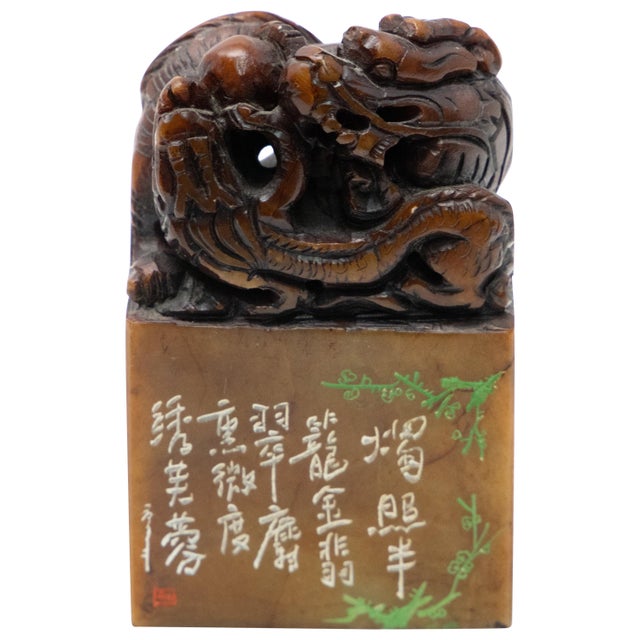 燭照半
籠金翡
翠麝
熏微度
绣芙蓉